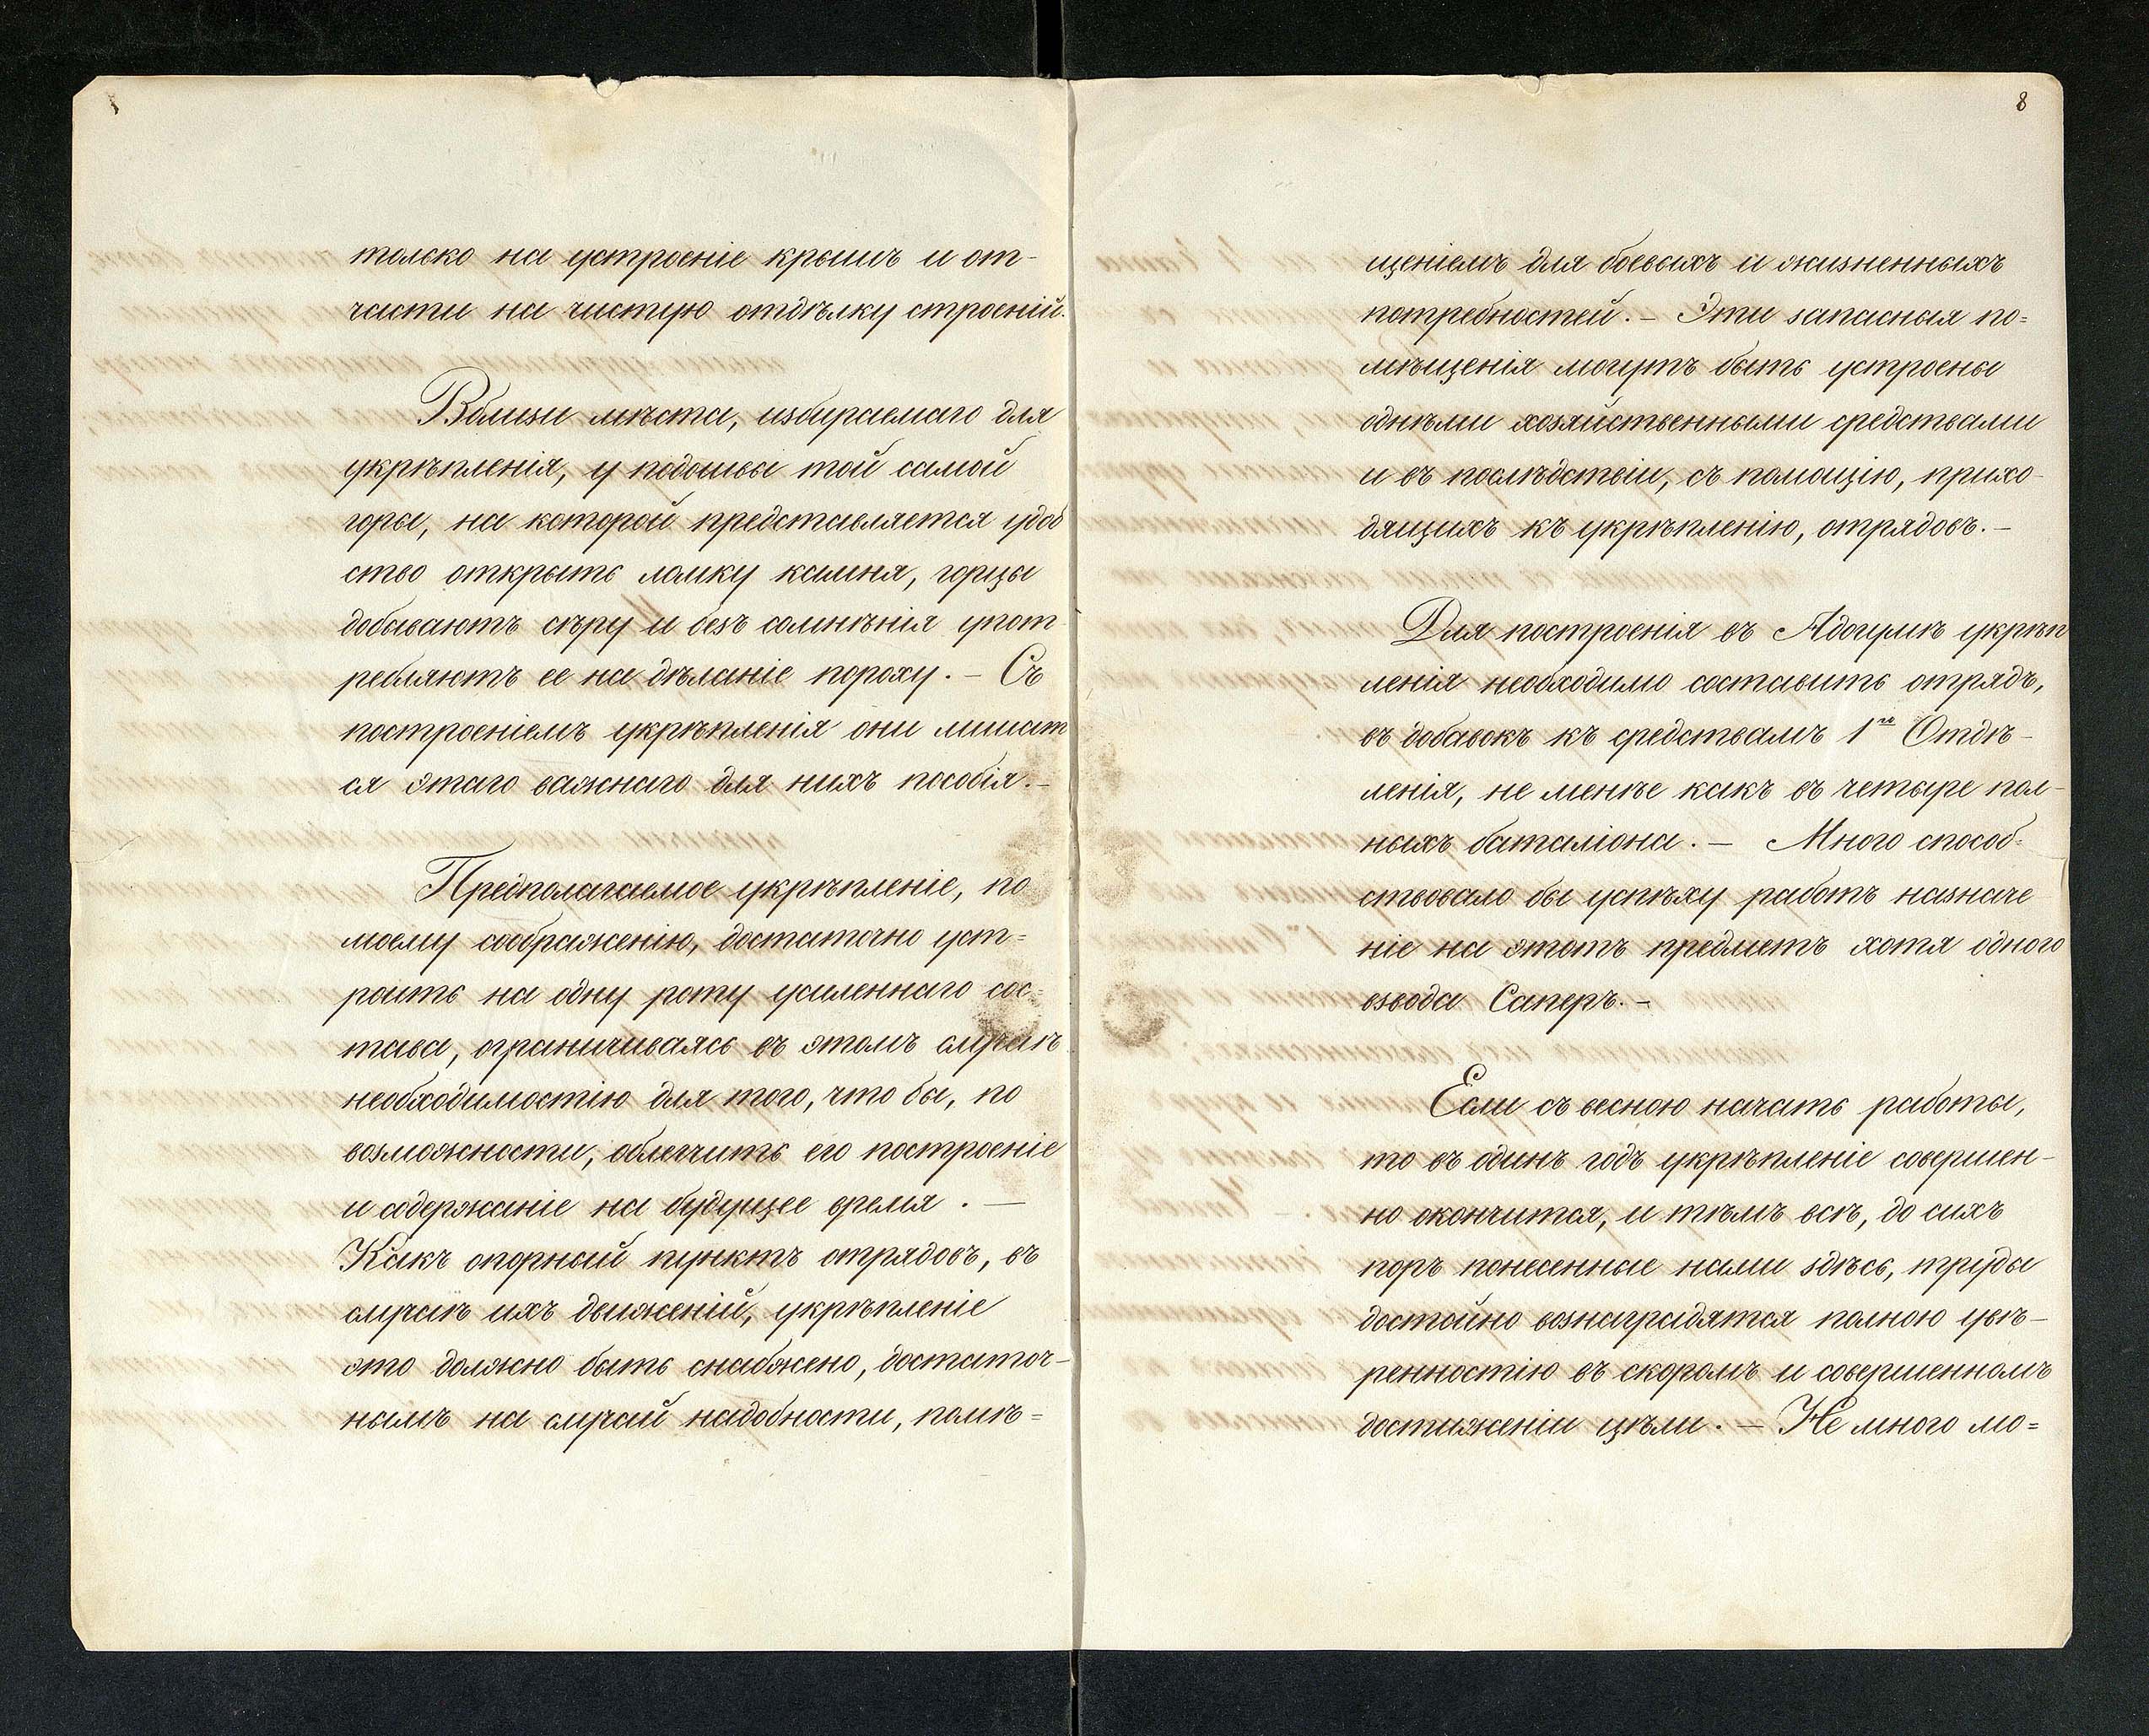 только на устроеніе крышъ и от-
части на чистую отдѣлку строеній.
Вблизи мѣста, избираемаго для
укрѣпленія, у подошвы той самой
горы, на которой представляется удоб
ство открыть ломку камня, горцы
добываютъ сѣру и безъ сомнѣнія упот
ребляютъ ее на дѣланіе пороху. – Съ
построеніемъ укрѣпленія они лишат
ся этаго важнаго для нихъ пособія. –
Предполагаемое укрѣпленіе, по
моему соображенію, достаточно уст=
роить на одну роту усиленнаго сос=
тава, ограничиваясь въ этомъ случаѣ
необходимостію для того, что бы, по
возможности, облегчить его построеніе
и содержаніе на будущее время . —
Какъ опорный пунктъ отрядовъ, въ
случаѣ ихъ движеній, укрѣпленіе
это должно быть снабжено, достаточ-
нымъ на случай надобности, помѣ=
8
щеніемъ для боевыхъ и жизненныхъ
потребностей. – Эти запасныя по=
мѣщенія могутъ быть устроены
однѣми хозяйственными средствами
и въ послѣдствіи, съ помощію, прихо-
дящихъ къ укрѣпленію, отрядовъ. –
Для построенія въ Адогумѣ укрѣп
ленія необходимо составить отрядъ,
въ добавокъ къ средствамъ 1го Отдѣ-
ленія, не менѣе какъ въ четыре пол-
ныхъ баталіона. — Много способ=
ствовало бы успѣху работъ назначе
ніе на этотъ предметъ хотя одного
взвода Саперъ. –
Если съ весною начать работы,
то въ одинъ годъ укрѣпленіе совершен-
но окончится, и тѣмъ всѣ, до сихъ
поръ понесенные нами здѣсь, труды
достойно вознаградятся полною увѣ-
ренностію въ скоромъ и совершенномъ
достиженіи цѣли. – Не много мо=